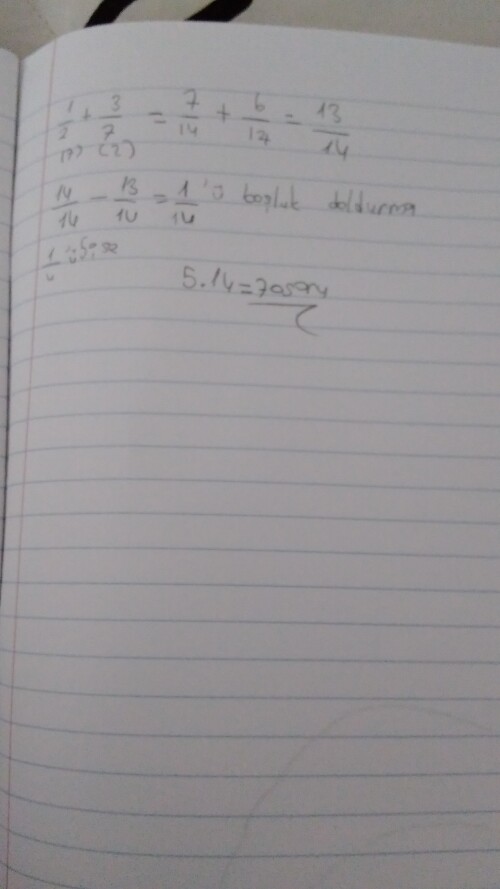 1/2 + 3/7 = 7/14 + 6/14 = 13/14
(7) (2)
14/14 - 13/14 = 1/14 'ü boşluk doldurma
1/14 ü 5 ise
5.14=70 soru